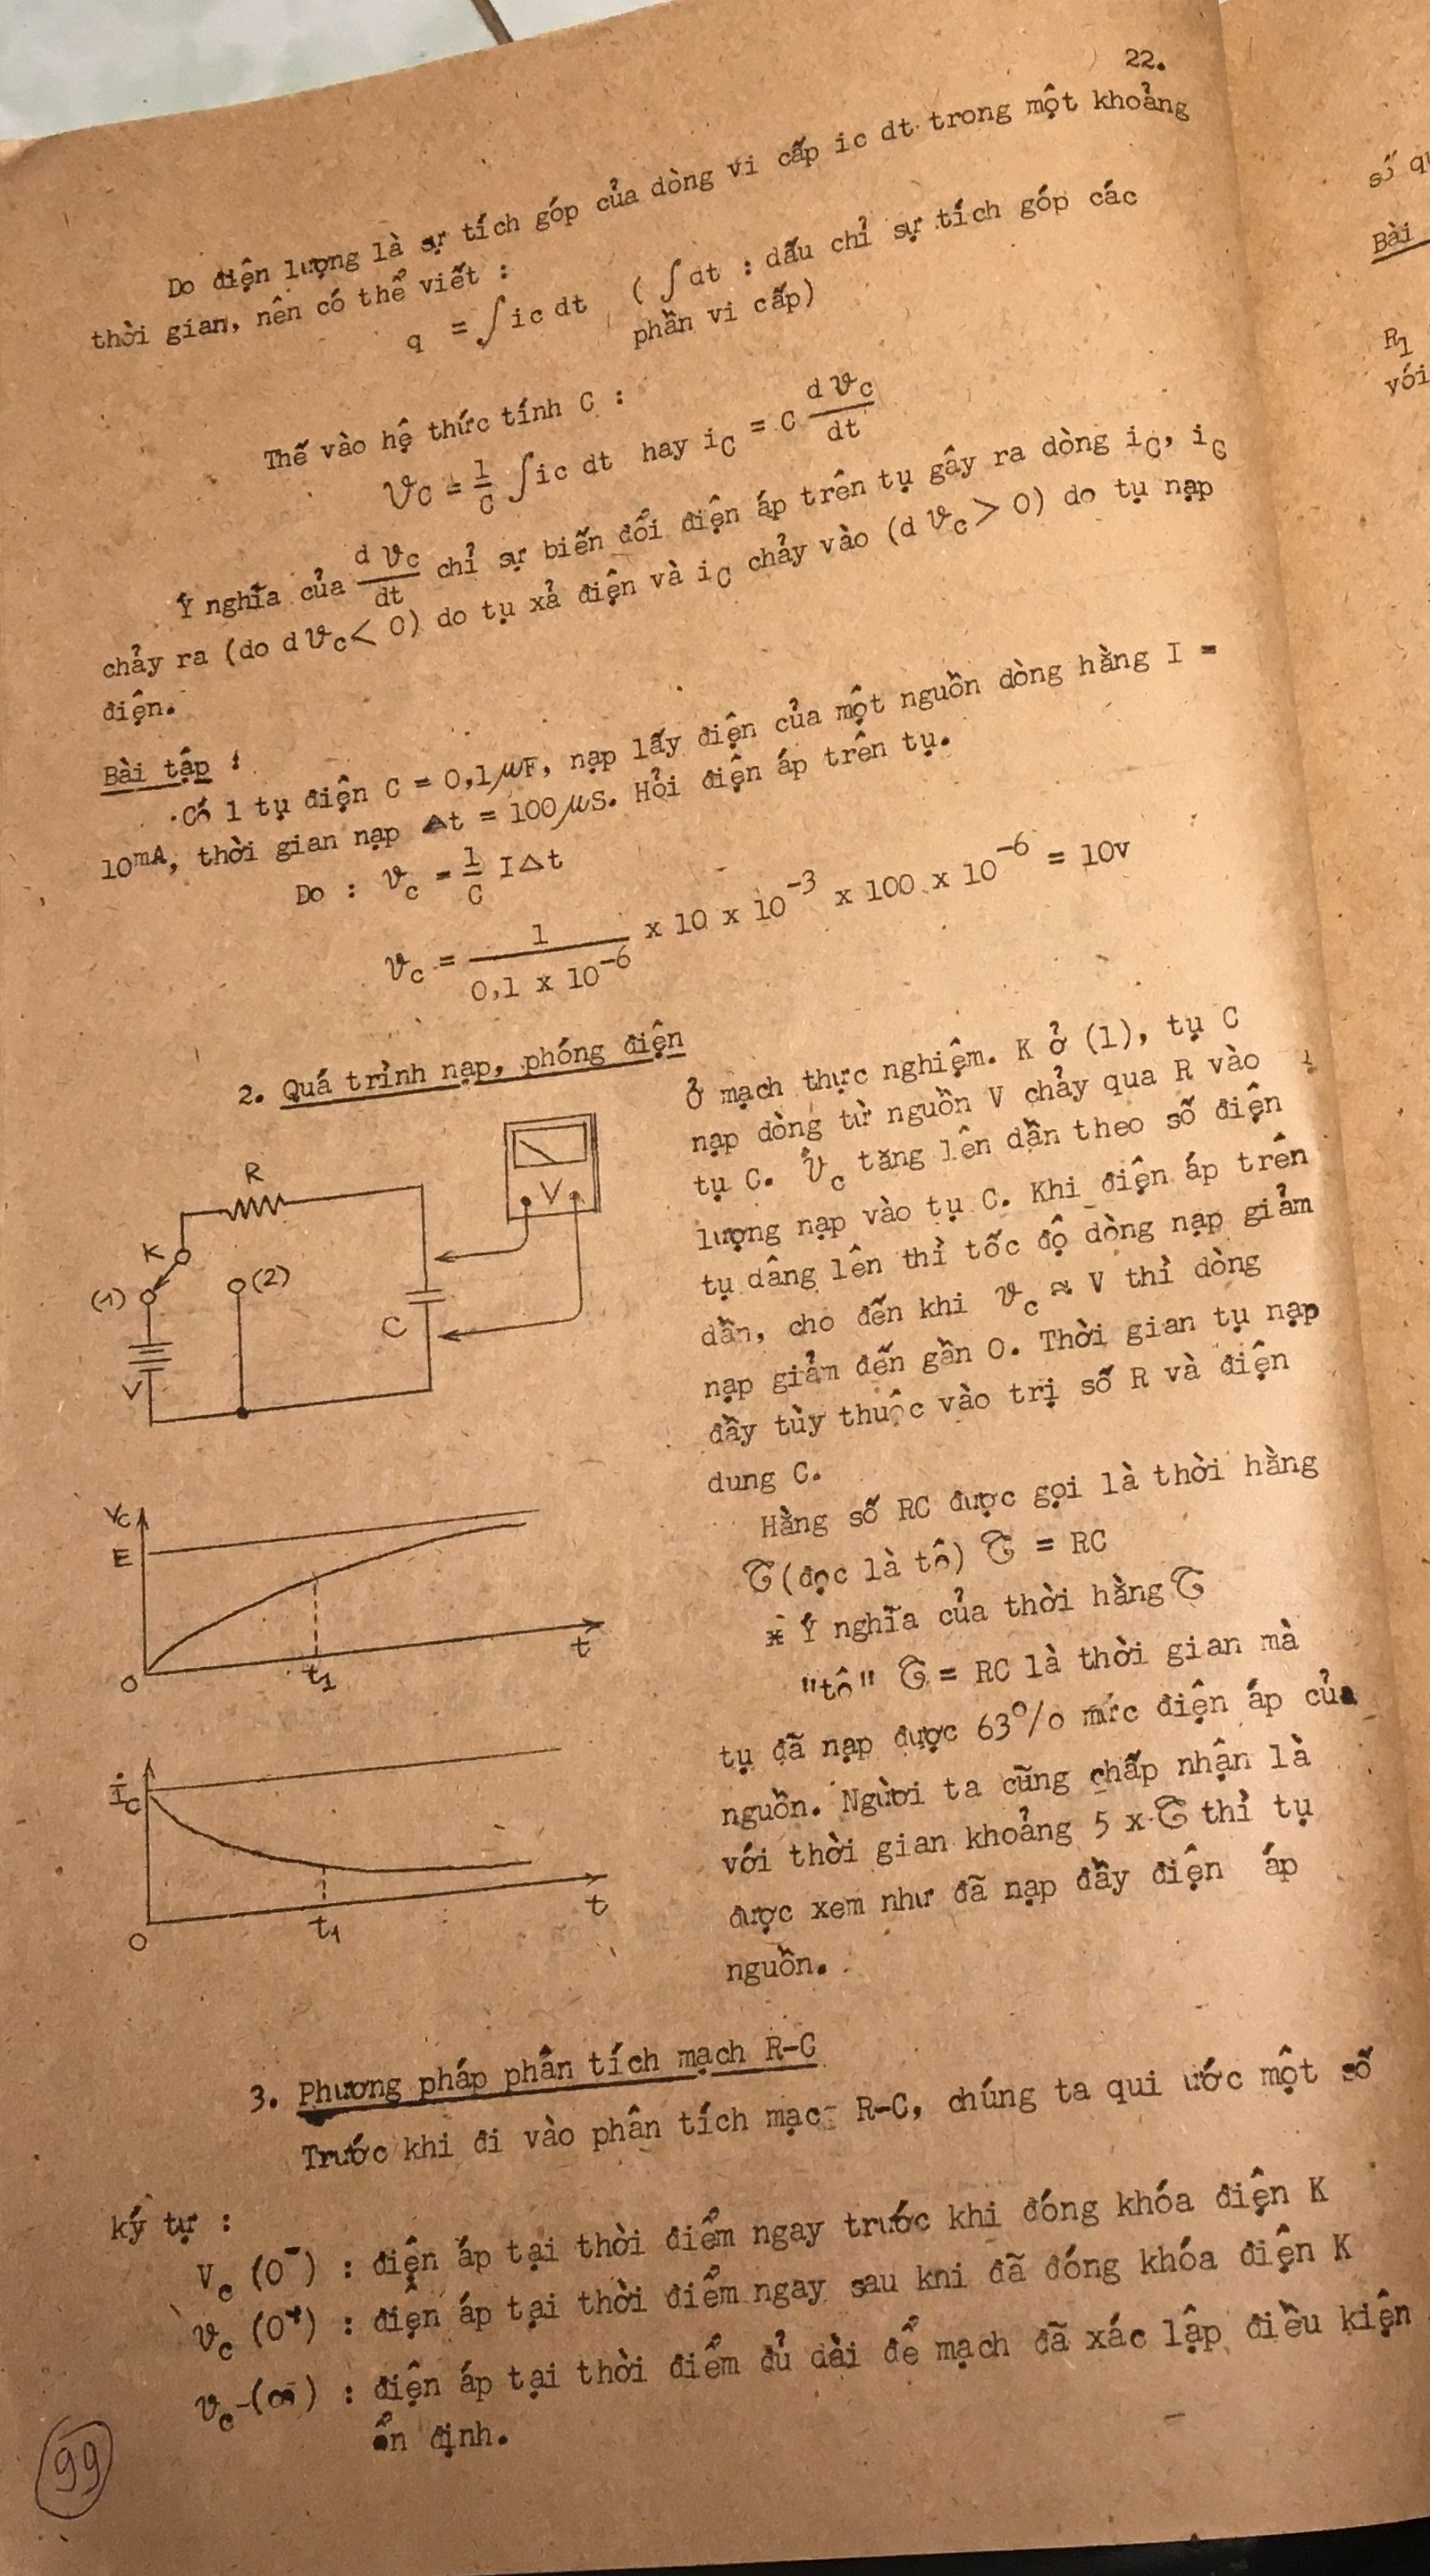 22.
Do điện lượng là sự tích góp của dòng vi cấp ic dt trong một khoảng
thời gian, nên có thể viết :
q = ∫ ic dt ( ∫ dt : dấu chỉ sự tích góp các
phần vi cấp)
Thế vào hệ thức tính C :
vC = 1/C ∫ ic dt hay iC = C d vc/dt
Ý nghĩa của d vc/dt chỉ sự biến đổi điện áp trên tụ gây ra dòng iC, iC
chảy ra (do d vc < 0) do tụ xả điện và iC chảy vào (d vc > 0) do tụ nạp
điện.
Bài tập :
Có 1 tụ điện C = 0,1 μF, nạp lấy điện của một nguồn dòng hằng I =
10mA, thời gian nạp Δt = 100 μS. Hỏi điện áp trên tụ.
Do : vc = 1/C I Δt
vc = 1/(0,1 x 10⁻⁶) x 10 x 10⁻³ x 100 x 10⁻⁶ = 10v
2. Quá trình nạp, phóng điện
Ở mạch thực nghiệm. K ở (1), tụ C
nạp dòng từ nguồn V chảy qua R vào
tụ C. vc tăng lên dần theo số điện
lượng nạp vào tụ C. Khi điện áp trên
tụ dâng lên thì tốc độ dòng nạp giảm
dần, cho đến khi vc ≈ V thì dòng
nạp giảm đến gần 0. Thời gian tụ nạp
đầy tùy thuộc vào trị số R và điện
dung C.
Hằng số RC được gọi là thời hằng
τ (đọc là tô) τ = RC
* Ý nghĩa của thời hằng τ
"tô" τ = RC là thời gian mà
tụ đã nạp được 63% mức điện áp của
nguồn. Người ta cũng chấp nhận là
với thời gian khoảng 5 x τ thì tụ
được xem như đã nạp đầy điện áp
nguồn.
R
V
K
(1)
(2)
C
V
Vc
E
O
t1
t
ic
O
t1
t
3. Phương pháp phân tích mạch R-C
Trước khi đi vào phân tích mạc R-C, chúng ta qui ước một số
ký tự :
Vc (0⁻) : điện áp tại thời điểm ngay trước khi đóng khóa điện K
vc (0⁺) : điện áp tại thời điểm ngay sau khi đã đóng khóa điện K
vc-(∞) : điện áp tại thời điểm đủ dài để mạch đã xác lập điều kiện
ổn định.
99
số
Bài
R1
với